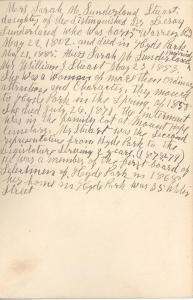 Mrs Sarah M. Sunderland Stuart.
daughter of the distinguished Dr. LeRoy
Sunderland who was born Warren R.I.
May 22, 1802. and died in Hyde Park
1885. Miss Sarah M. Sunderland
Mr William J. Stuart Nov 23, 1853.
She was a woman of more than ordinary
attractions and character. They moved
to Hyde Park in the Spring of 1857
she died July 24, 1871. The interment
was in the family lot at Mount Hope
Cemetery. Mr Stuart was the second
representative from Hyde Park to the
Legislature serving 2 years. (1878&1879)
He was a member of the first board of
Selectmen of Hyde Park in 1868
Her home in Hyde Park was 25 Water
Street